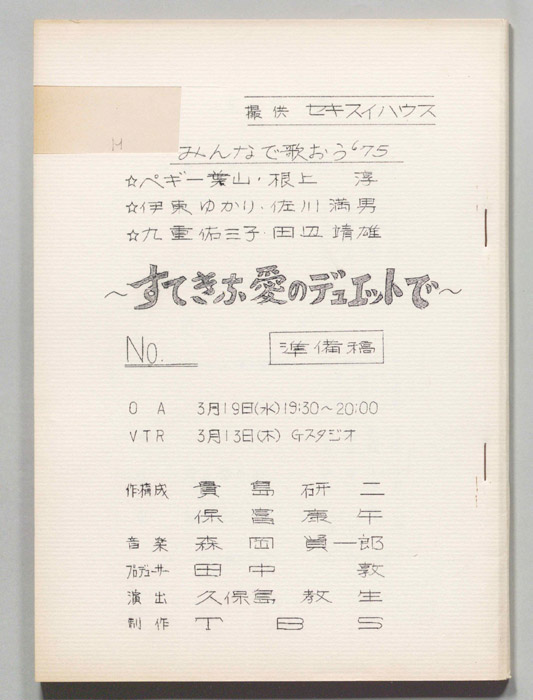 M
提供 セキスイハウス
みんなで歌おう'75
☆ペギー葉山・根上 淳
☆伊東ゆかり・佐川満男
☆九重佑三子・田辺靖雄
～すてきな愛のデュエットで～
No.
準備稿
OA 3月19日(水)19:30～20:00
VTR 3月13日(木) Gスタジオ
作構成 貴島研二
保富康午
音楽 森岡賢一郎
プロデューサー 田中敦
演出 久保島教生
制作 TBS